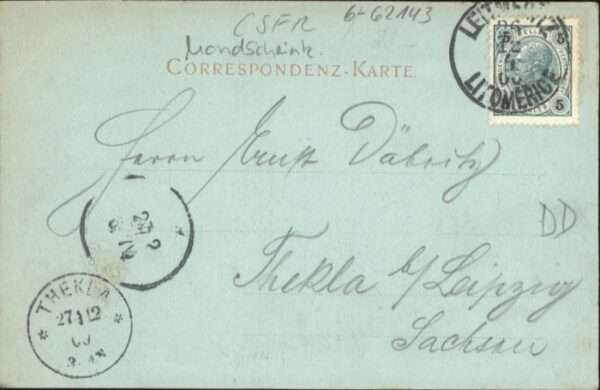 CSFR 6-62143
Mondscheink.
CORRESPONDENZ-KARTE.
LEITMERITZ
LITOMĚŘICE
5 5
Herrn Ernst Däbritz
DD
Thekla b/Leipzig
Sachsen
THEKLA
27 12
00